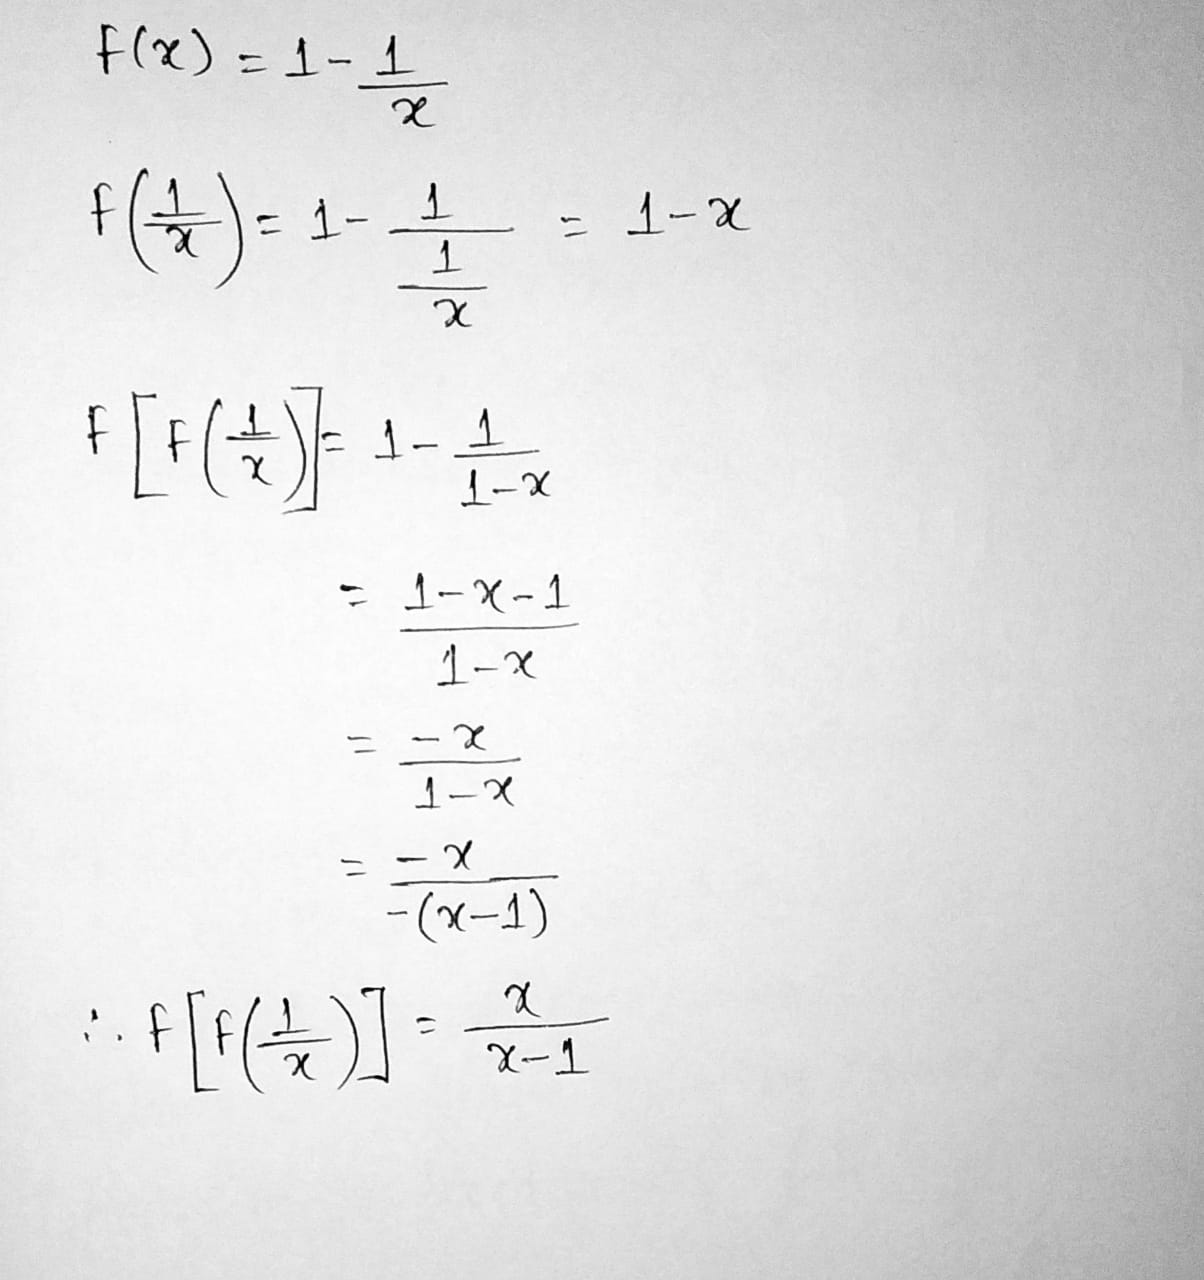 f(x) = 1 - 1/x
f(1/x) = 1 - 1/(1/x) = 1-x
f[f(1/x)] = 1 - 1/(1-x)
= (1-x-1)/(1-x)
= -x/(1-x)
= -x/-(x-1)
∴ f[f(1/x)] = x/(x-1)